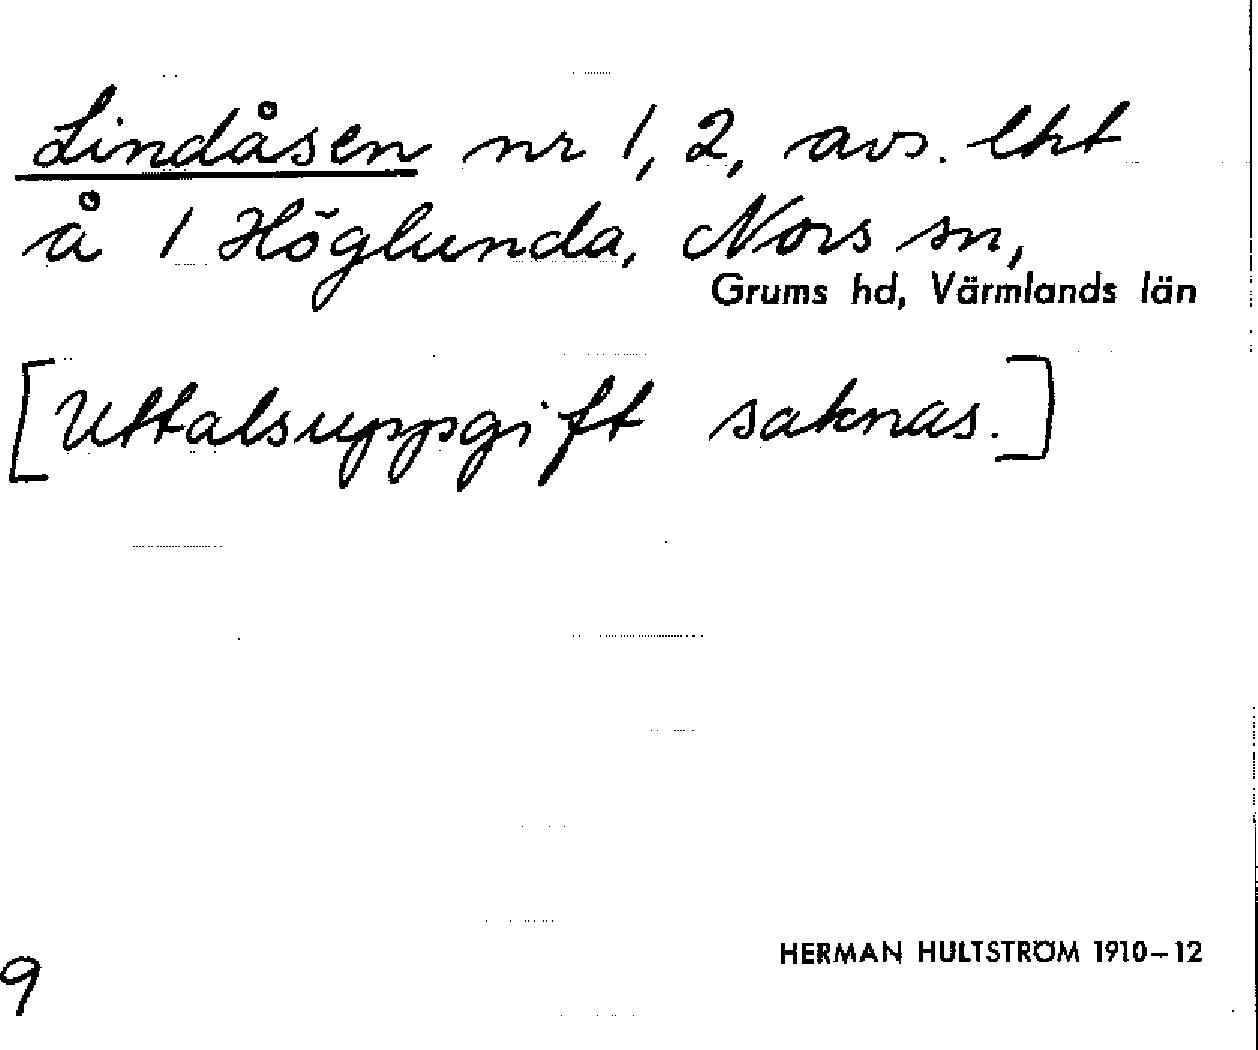 Lindåsen nr 1, 2, avs. lht
å 1 Höglunda, Nors sn,
Grums hd, Värmlands län
[Uttalsuppgift saknas.]
HERMAN HULTSTRÖM 1910–12
9